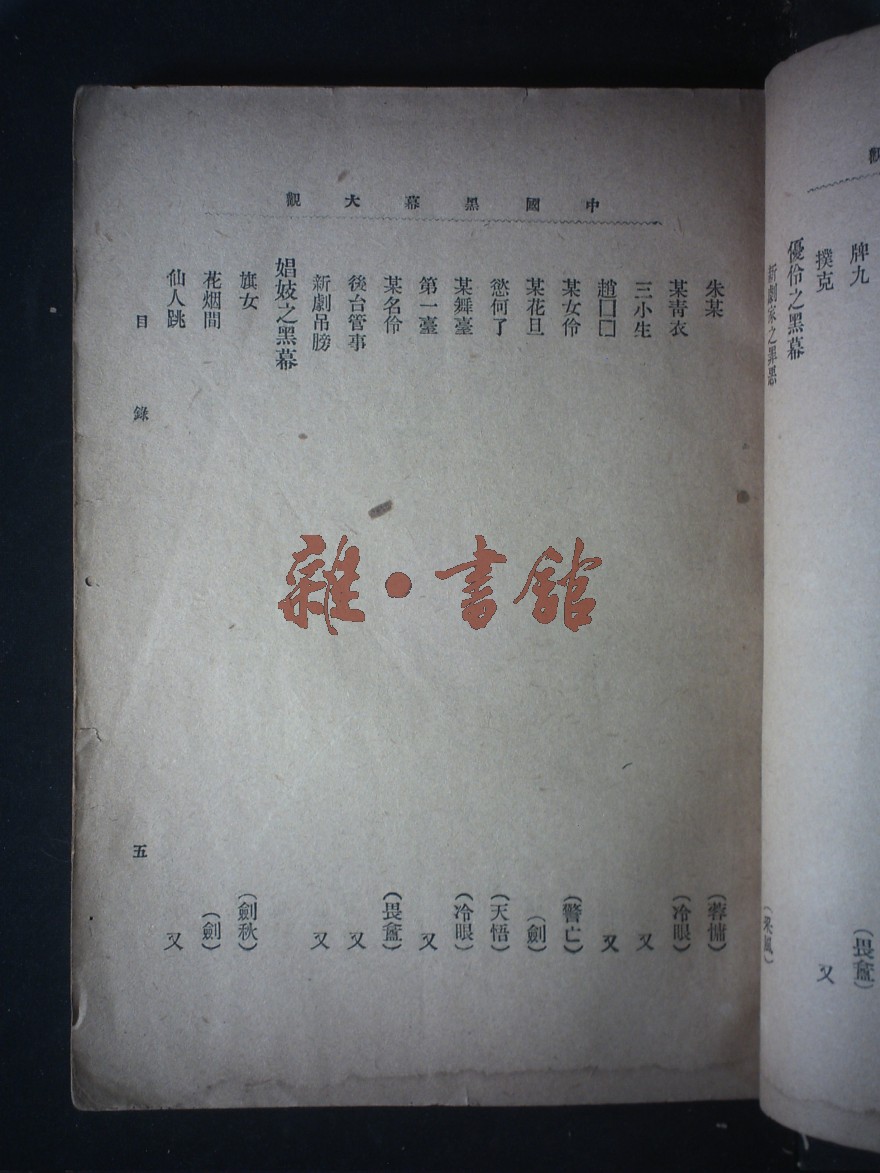 中國黑幕大觀
朱某　（蓉慵）
某靑衣　（冷眼）
三小生　又
趙囗囗　又
某女伶　（警亡）
某花旦　（劍）
慾何了　（天悟）
某舞臺　（冷眼）
第一臺　又
某名伶　（畏盦）
後台管事　又
新劇吊膀　又
娼妓之黑幕
旗女　（劍秋）
花烟間　（劍）
仙人跳　又
目錄　五
雜·書館
觀
牌九　（畏盦）
撲克　又
優伶之黑幕
新劇家之罪惡